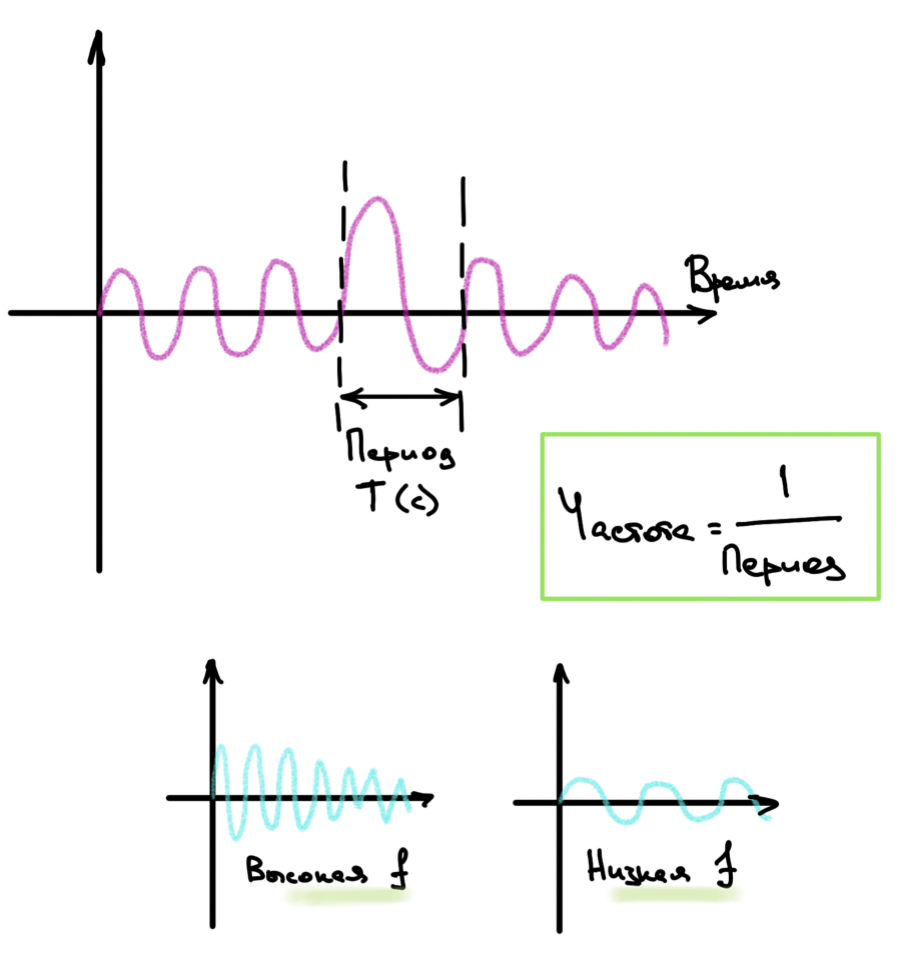 Время
Период
T (с)
Частота = 1 / Период
Высокая f
Низкая f